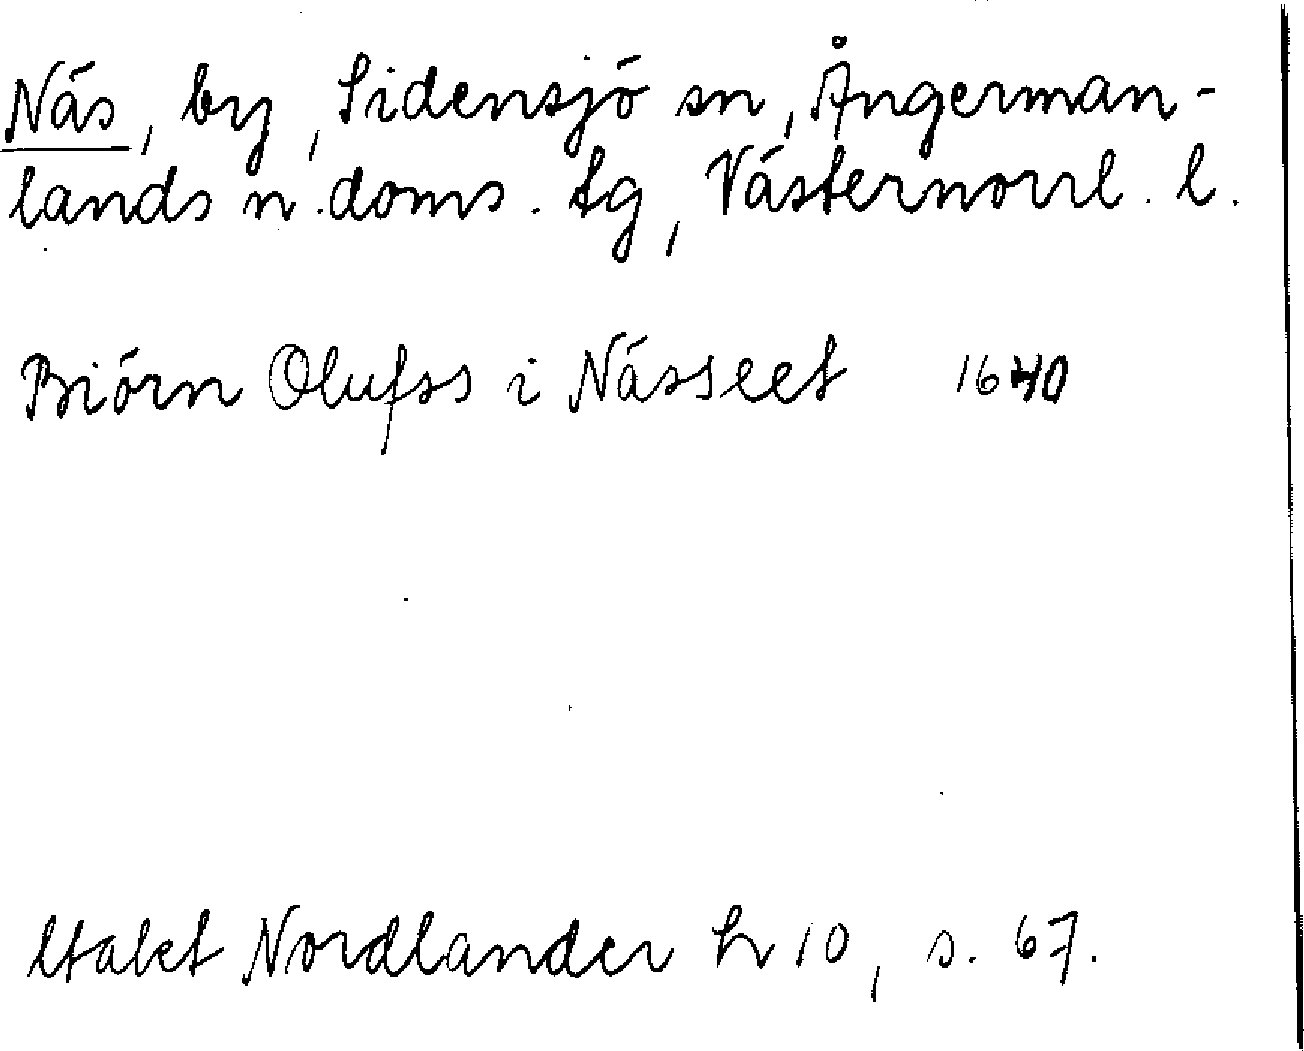 Näs, by, Sidensjö sn, Ångerman-
lands n. doms. tg, Västernorrl. l.
Biörn Olufss i Nässeet 1640
Utalet Nordlander h 10, s. 67.